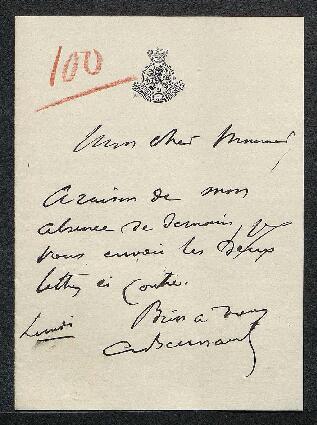 100
Mon cher Monsieur,
A raison de mon
absence de demain, je
vous envoie les deux
lettres ci contre.
Bien à vous
Lundi